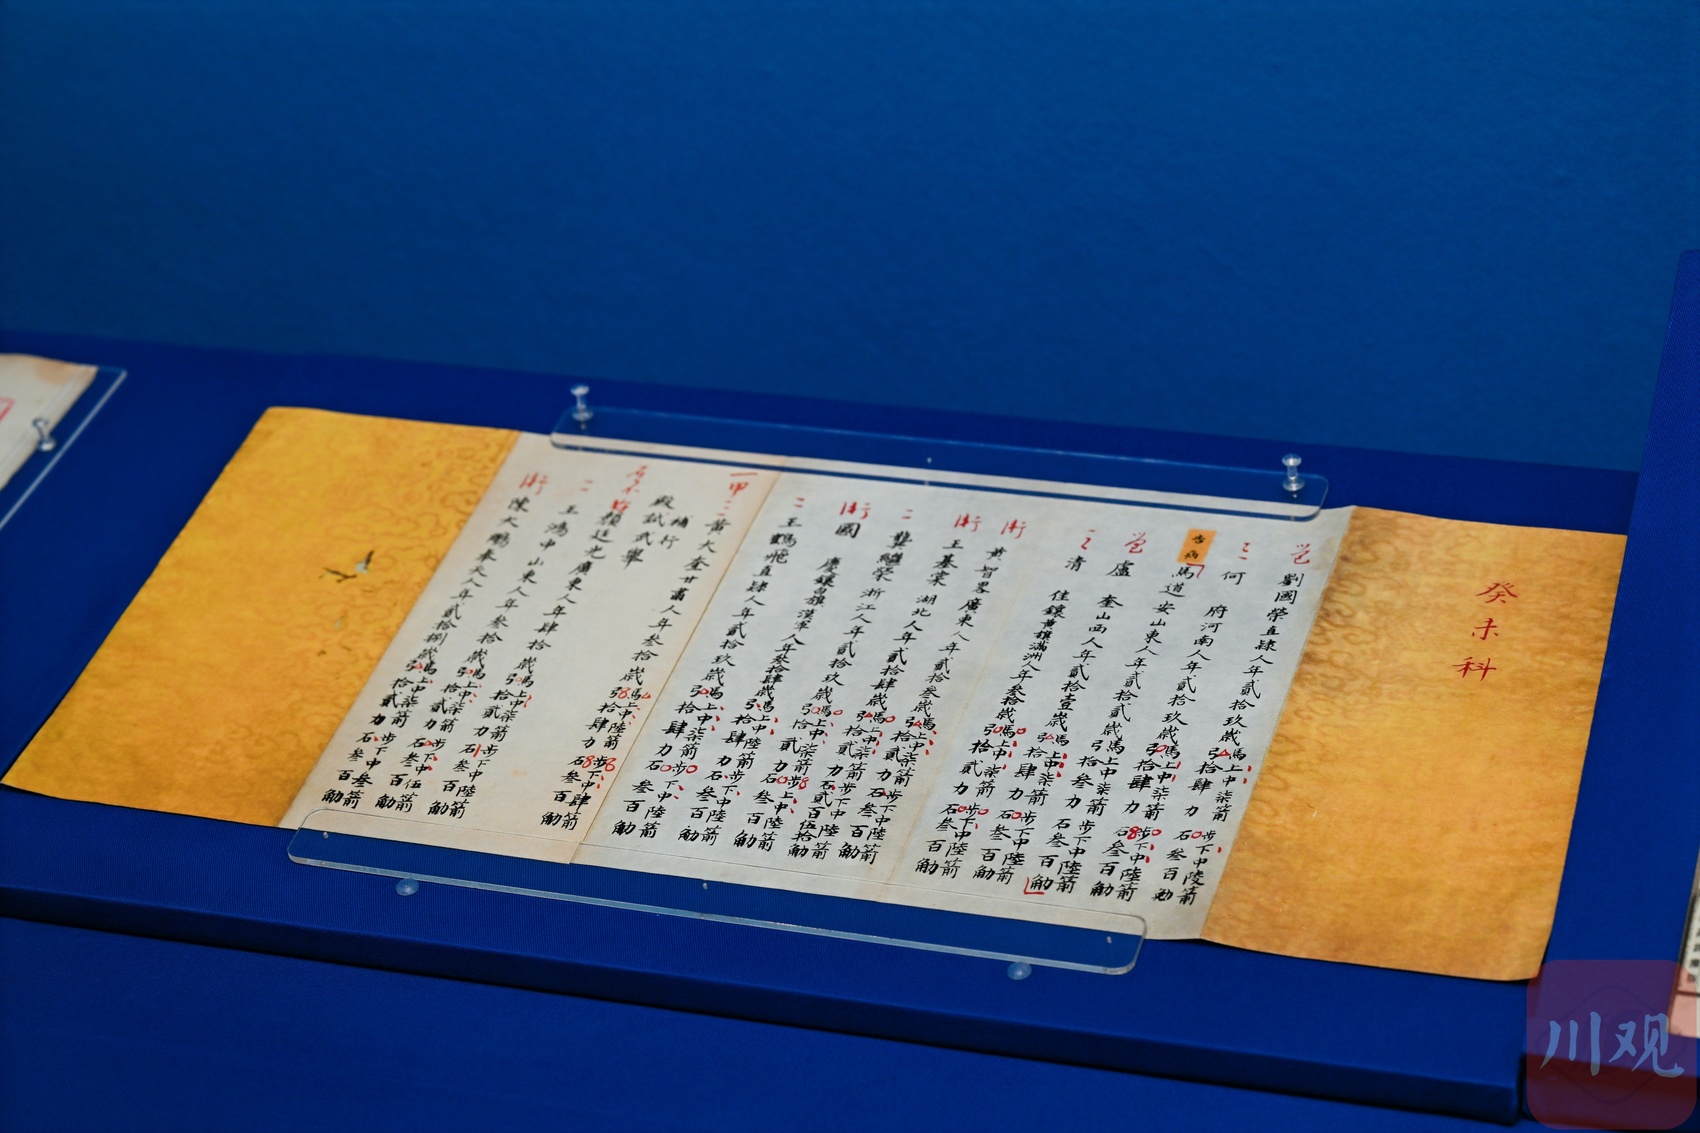 癸未科
劉國榮直隸人年貳拾玖歲馬上中柒箭步下中陸箭
弓拾肆力石叁百觔
三
何府河南人年貳拾玖歲馬上中柒箭步下中陸箭
弓拾肆力石叁百觔
告病
馬道安山東人年貳拾貳歲馬上中柒箭步下中陸箭
弓拾叁力石叁百觔
盧奎山西人年貳拾壹歲馬上中柒箭步下中陸箭
弓拾肆力石叁百觔
清佳鑲黃旗滿洲人年叁拾歲馬上中柒箭步下中陸箭
弓拾貳力石叁百觔
黃智畧廣東人年貳拾叁歲馬上中柒箭步下中陸箭
弓拾貳力石叁百觔
王基棠湖北人年貳拾肆歲馬上中柒箭步下中陸箭
弓拾貳力石叁百觔
二
龔繼榮浙江人年貳拾玖歲馬上中柒箭步下中陸箭
弓拾貳力石貳百伍拾觔
國慶鑲白旗漢軍人年叁拾肆歲馬上中陸箭步上中陸箭
弓拾肆力石叁百觔
二
王鶴飛直隸人年貳拾玖歲馬上中柒箭步下中陸箭
弓拾肆力石叁百觔
一甲二
黃大奎甘肅人年叁拾歲馬上中陸箭步下中肆箭
弓拾肆力石叁百觔
補行
殿試武舉
顏廷光廣東人年肆拾歲馬上中柒箭步下中陸箭
弓拾貳力石叁百觔
二
王鴻中山東人年叁拾歲馬上中柒箭步下中伍箭
弓拾貳力石叁百觔
陳大鵬奉天人年貳拾捌歲馬上中柒箭步下中叁箭
弓拾貳力石叁百觔
川观